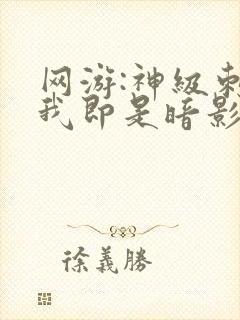 网游:神级刺
我即是暗影
徐義勝